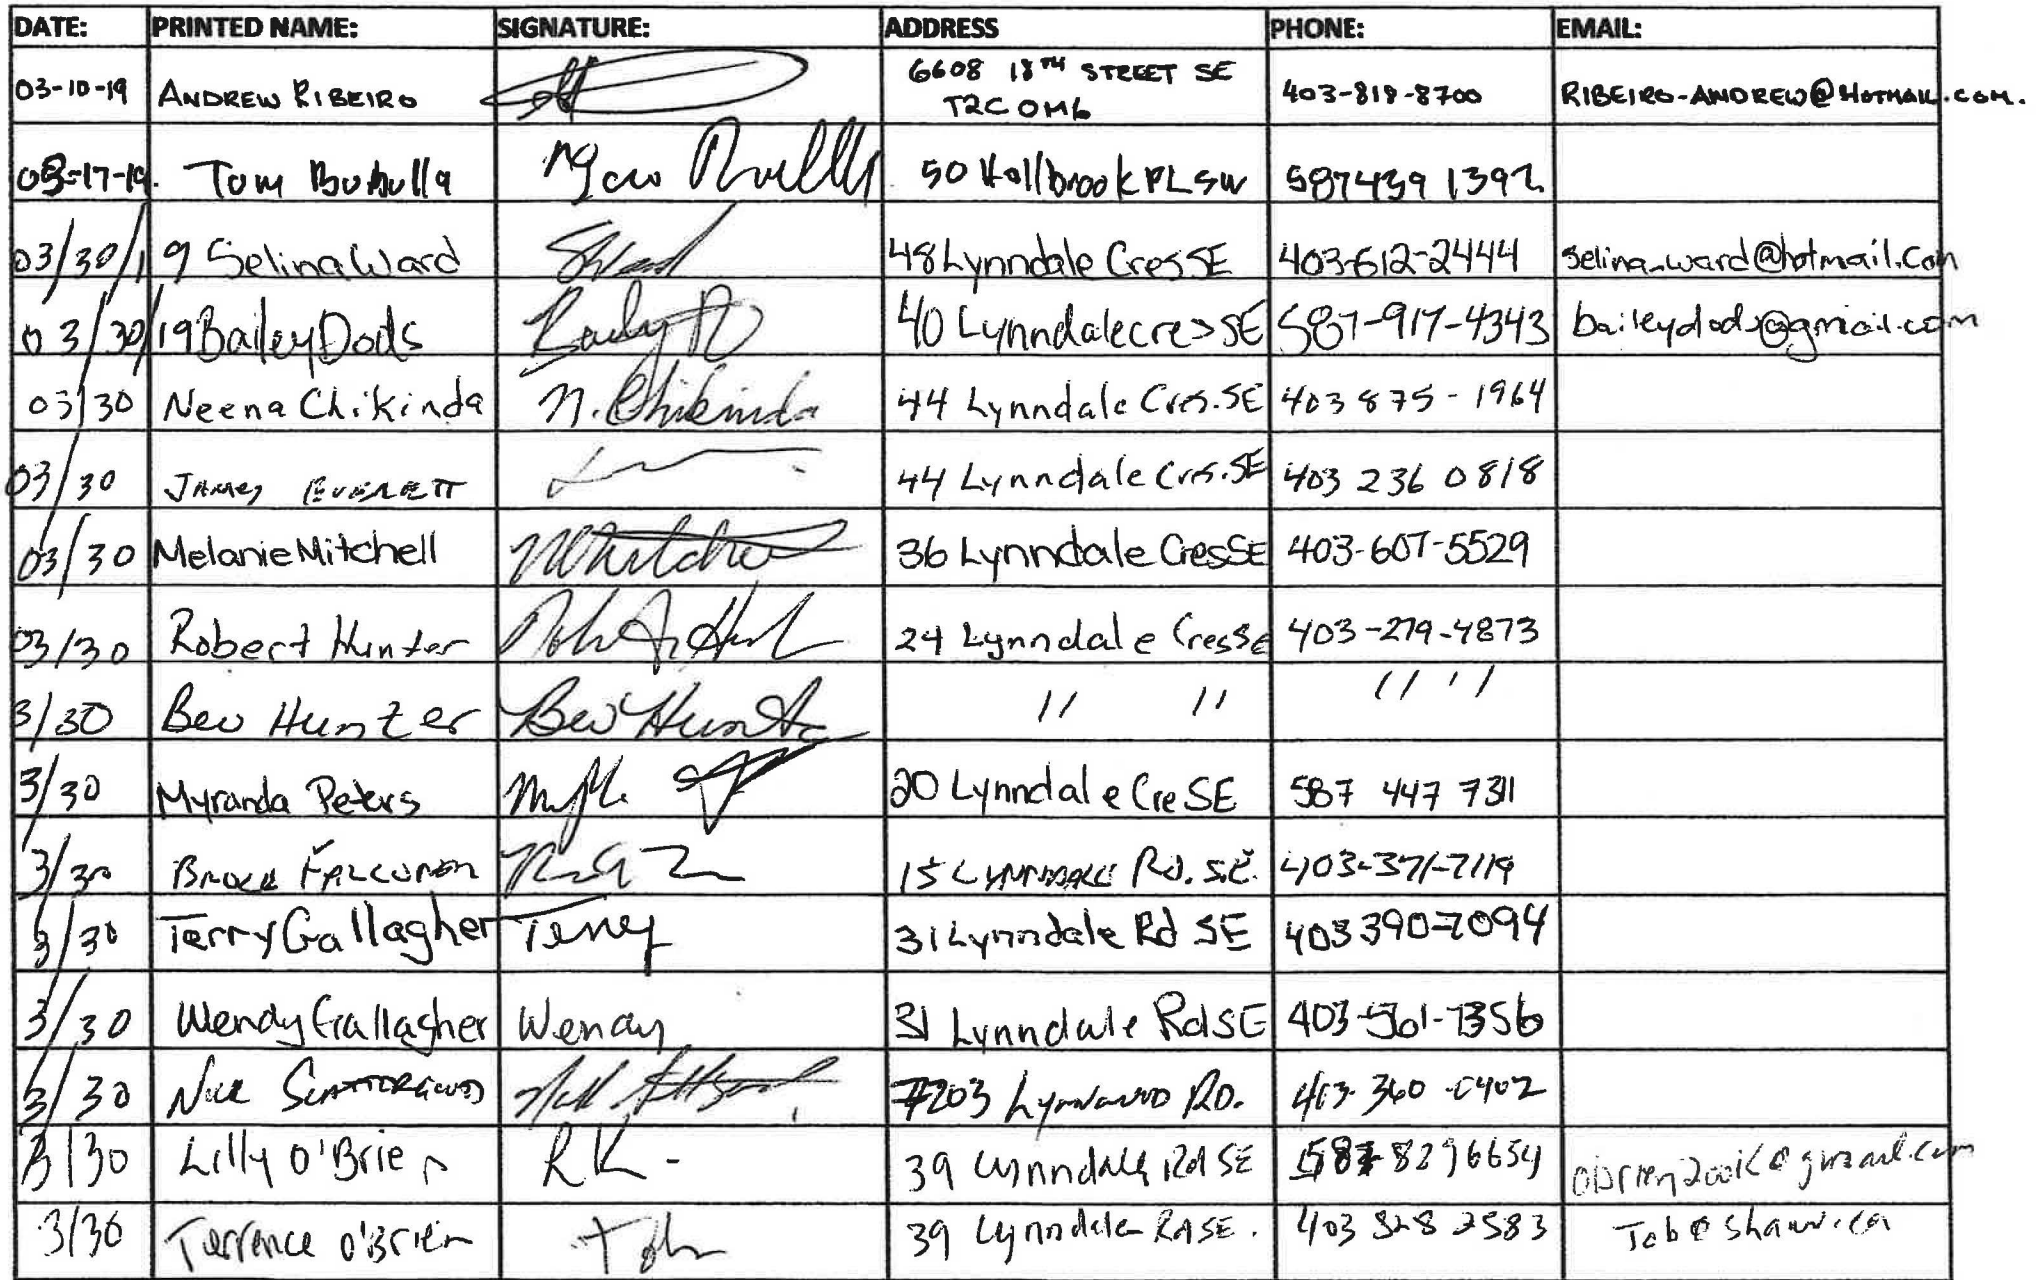 DATE: PRINTED NAME: SIGNATURE: ADDRESS PHONE: EMAIL:
03-10-19 ANDREW RIBEIRO 6608 18TH STREET SE 403-818-8700 RIBEIRO-ANDREW@HOTMAIL.COM.
T2C 0M6
03-17-19. Tom 50 Hallbrook PL SW 587 439 1392
03/30/19 Selina Ward SWard 48 Lynndale Cres SE 403-612-2444 selina_ward@hotmail.com
03/30/19 Bailey Dods 40 Lynndale cres SE 587-917-4343 baileydods@gmail.com
03/30 Neena Chikinda N. Chikinda 44 Lynndale Cres. SE 403 875-1964
03/30 JAMES EVERETT 44 Lynndale Cres. SE 403 236 0818
03/30 Melanie Mitchell 36 Lynndale Cres SE 403-607-5529
03/30 Robert Hunter 24 Lynndale Cres SE 403-279-4873
3/30 Bev Hunter Bev Hunter " " " "
3/30 Myranda Peters 20 Lynndale Cre SE 587 447 7311
3/30 15 LYNNDALE Rd. S.E. 403-371-7119
3/30 Terry Gallagher Terry 31 Lynndale Rd SE 403 390-7094
3/30 Wendy Gallagher Wendy 31 Lynndale Rd SE 403-561-7356
3/30 Nick #203 Lynnwood RD. 403-360-0402
3/30 Lilly O'Brien RK- 39 Lynndale Rd SE 587 8296654
3/30 Terrence O'Brien 39 Lynndale Rd SE. 403 828 2583 Tob@shaw.ca